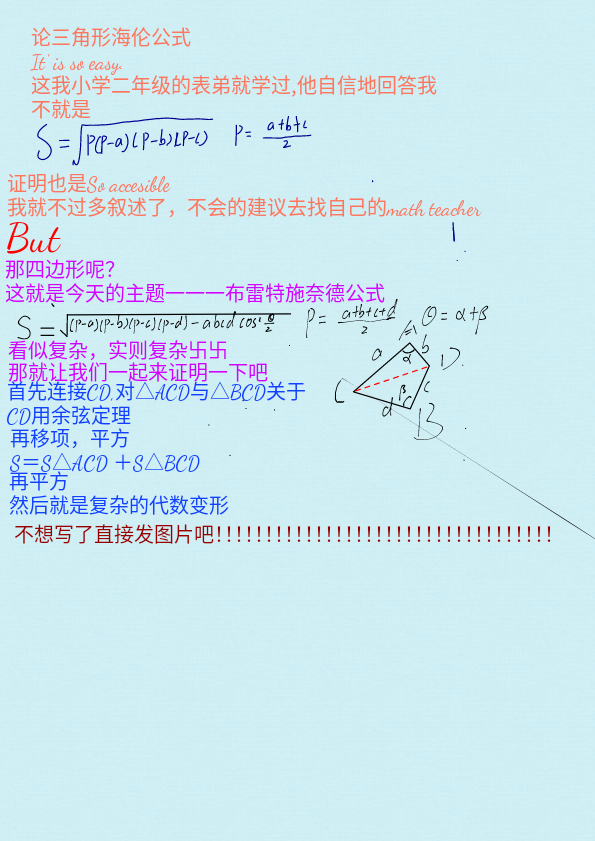 论三角形海伦公式
It' is so easy.
这我小学二年级的表弟就学过,他自信地回答我
不就是
S=√P(P-a)(P-b)(P-c) P=(a+b+c)/2
证明也是So accesible
我就不过多叙述了，不会的建议去找自己的math teacher
But
那四边形呢？
这就是今天的主题一一一布雷特施奈德公式
S=√(P-a)(P-b)(P-c)(P-d)-abcd cos²θ/2 P=(a+b+c+d)/2 θ=α+β
看似复杂，实则复杂卐卐
那就让我们一起来证明一下吧
首先连接CD,对△ACD与△BCD关于
CD用余弦定理
再移项，平方
S=S△ACD +S△BCD
再平方
然后就是复杂的代数变形
不想写了直接发图片吧!!!!!!!!!!!!!!!!!!!!!!!!!!!!!!!!!!
A
a
b
α
D
C
β
c
d
B